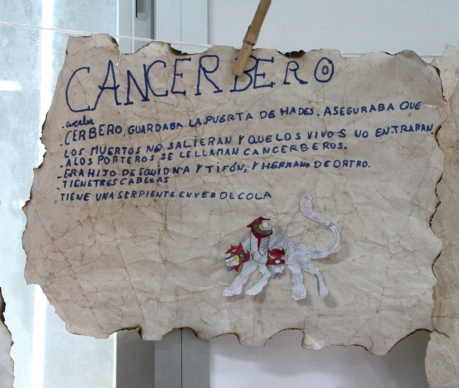 CANCERBERO
. CERBERO, GUARDABA LA PUERTA DE HADES. ASEGURABA QUE
LOS MUERTOS NO SALIERAN Y QUE LOS VIVOS NO ENTRARAN
. A LOS PORTEROS SE LE LLAMAN CANCERBEROS.
. ERA HIJO DE EQUIDNA Y TIFÓN, Y HERMANO DE ORTRO.
. TIENE TRES CABEZAS
. TIENE UNA SERPIENTE EN VEZ DE COLA